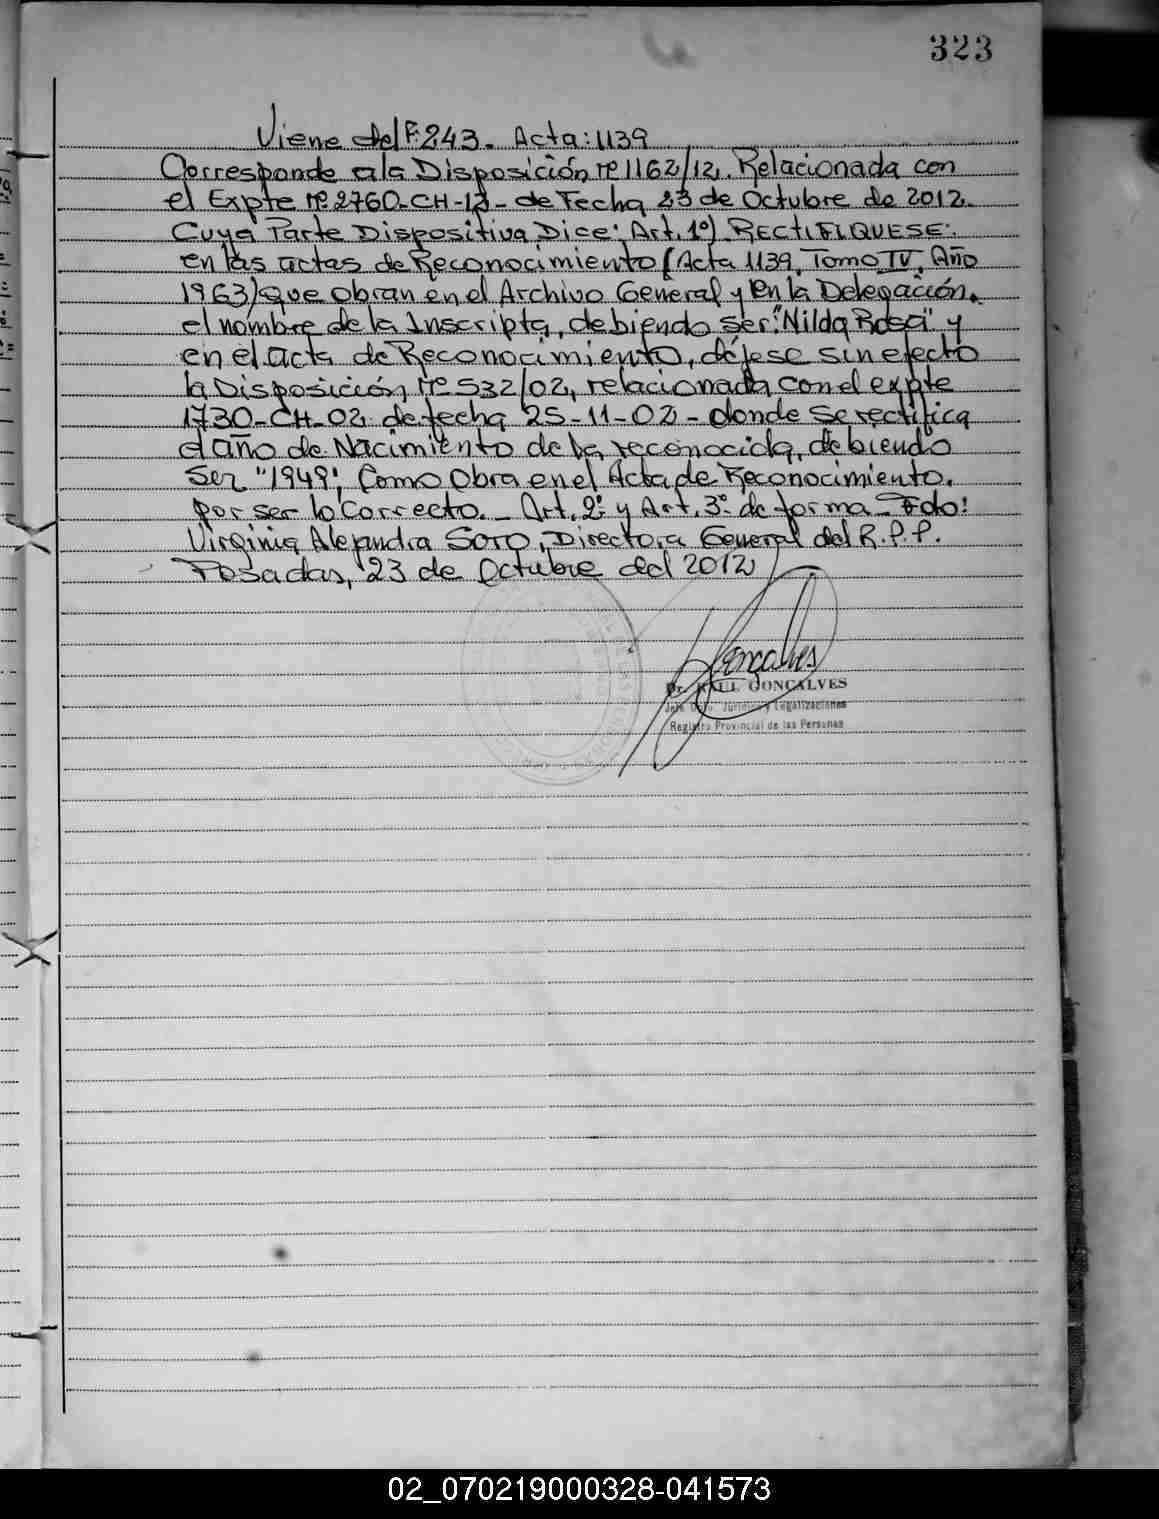 323
Viene del F: 243. Acta: 1139
Corresponde a la Disposición nº 1162/12. Relacionada con
el Expte nº 2760-CH-12 - de Fecha 23 de Octubre de 2012.
Cuya Parte Dispositiva Dice: Art. 1º) RECTIFIQUESE:
en las actas de Reconocimiento (Acta 1139, Tomo IV, Año
1963) Que obran en el Archivo General y en la Delegación,
el nombre de la Inscripta, debiendo ser: "Nilda Rosa" y
en el acta de Reconocimiento, déjese sin efecto
la Disposición nº 532/02, relacionada con el expte
1730-CH-02 de fecha 25-11-02 - donde se rectifica
el año de Nacimiento de la reconocida, debiendo
Ser "1949", Como Obra en el Acta de Reconocimiento,
por ser lo Correcto. - Art. 2º y Art. 3º de forma - Fdo:
Virginia Alejandra Soro, Directora General del R.P.P.
Posadas, 23 de Octubre del 2012
Goncalves
Dr. RAUL GONCALVES
Jefe Dpto. Jurídico y Legalizaciones
Registro Provincial de las Personas
02_070219000328-041573